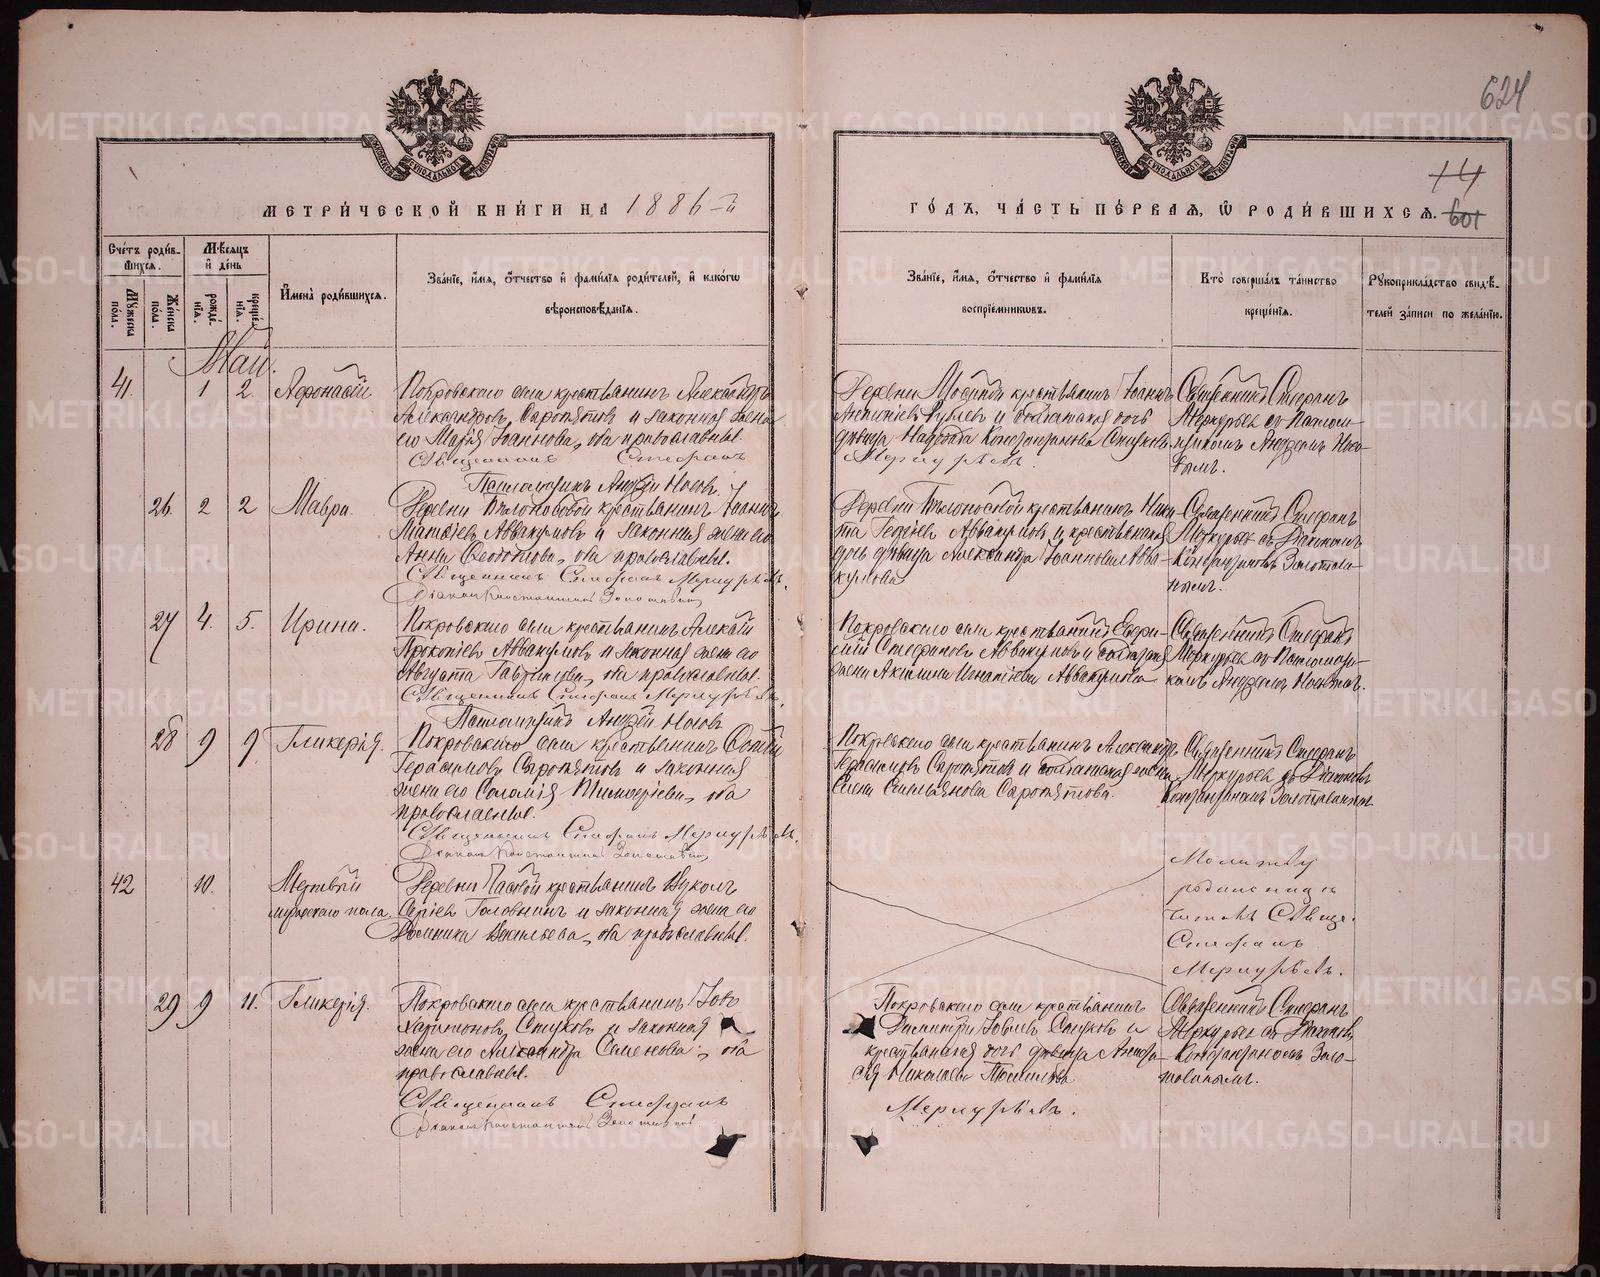 624
14
601
МЕТРИЧЕСКОЙ КНИГИ НА 1886-й
ГОДЪ, ЧАСТЬ ПЕРВАЯ, Ѡ РОДИВШИХСЯ.
Счетъ родившихся.
Мужеска пола.
Женска пола.
Мѣсяцъ и день
рожденія.
крещенія.
Имена родившихся.
Званіе, имя, отчество и фамилія родителей, и какогѡ
вѣроисповѣданія.
Званіе, имя, отчество и фамилія
воспріемниковъ.
Кто совершалъ таинство
крещенія.
Рукоприкладство свидѣтелей записи по желанію.
Май.
41. 1 2 Афонасій
Покровскаго села крестьянинъ Александръ
Александровъ Сыропятовъ и законная жена
его Марія Іоаннова, оба православные.
Священникъ Стефанъ
Меркурьевъ.
Псаломщикъ Андрей Носовъ.
Деревни крестьянинъ Іоаннъ
и солдатская дочь
дѣвица Надежда Константинова
Священникъ Стефанъ
Меркурьев съ Псаломщикомъ Андреем Носовым.
26. 2 2 Мавра.
Деревни Бѣлоносовой крестьянинъ Іоаннъ
Матѳіевъ Аввакумовъ и законная жена его
Анна Ѳеодотова, оба православные.
Священникъ Стефанъ Меркурьевъ.
Діаконъ Константинъ Золотавинъ
Деревни Бѣлоносовой крестьянинъ Никита
Аввакумовъ и крестьянская
дочь дѣвица Александра Іоаннова Аввакумова
Священникъ Стефанъ
Меркурьев съ Діакономъ
Константиномъ Золотавиным.
27 4. 5. Ирина.
Покровскаго села крестьянинъ Алексій
Прокопіевъ Аввакумовъ и законная жена его
Августа Гаврилова, оба православные.
Священникъ Стефанъ Меркурьевъ.
Псаломщикъ Андрей Носовъ
Покровскаго села крестьянинъ
Стефановъ Аввакумовъ и солдатская
жена Акилина Игнатіева Аввакумова
Священникъ Стефанъ
Меркурьев съ Псаломщикомъ Андреем Носовым.
28 9 9. Гликерія.
Покровскаго села крестьянинъ
Герасимовъ Сыропятовъ и законная
жена его Соломія Тимоѳеева, оба
православные.
Священникъ Стефанъ Меркурьевъ.
Діаконъ Константинъ Золотавинъ
Покровскаго села крестьянинъ Александръ
Герасимовъ Сыропятовъ и солдатская жена
Елена Сыропятова.
Священникъ Стефанъ
Меркурьев съ Діаконом
Константином Золотавиным
42 10. Мертвый
мужескаго пола.
Деревни крестьянинъ Вуколъ
Сергіевъ Головнинъ и законная жена его
Домника Васильева, оба православные.
Молитву
родильницѣ
читалъ Свяще.
Стефанъ
Меркурьевъ.
29 9 11. Гликерія.
Покровскаго села крестьянинъ Іовъ
Харитоновъ Стуковъ и законная
жена его Александра Семенова, оба
православные.
Священникъ Стефанъ
Меркурьевъ.
Діаконъ Константинъ Золотавинъ
Покровскаго села крестьянинъ
Іовлевъ Стуковъ и
крестьянская дочь дѣвица
Николаева
Священникъ Стефанъ
Меркурьев съ Діаконом
Константином Золотавиным.
METRIKI.GASO-URAL.RU